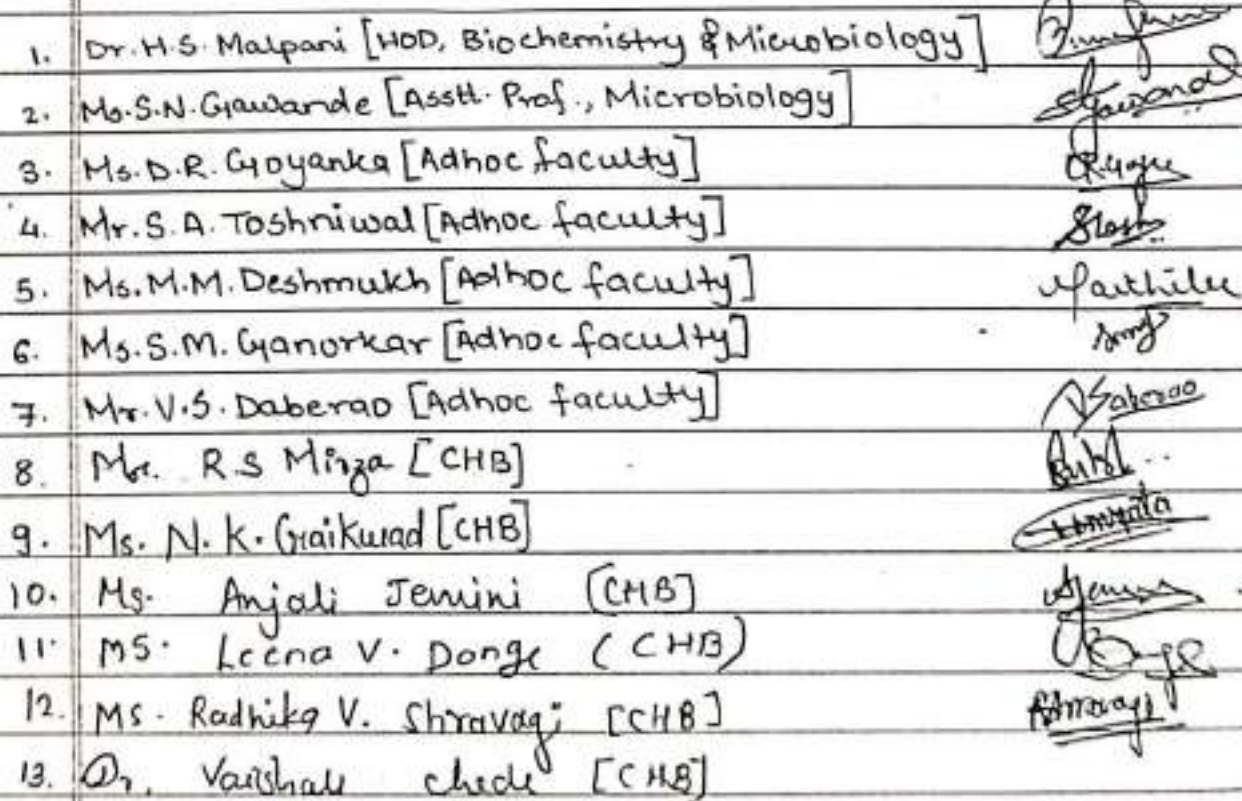 1. Dr. H.S. Malpani [HOD, Biochemistry & Microbiology]
2. Ms. S.N. Gawande [Asstt. Prof., Microbiology] Gawande
3. Ms. D.R. Goyanka [Adhoc faculty]
4. Mr. S.A. Toshniwal [Adhoc faculty]
5. Ms. M.M. Deshmukh [Adhoc faculty] Maithilee
6. Ms. S.M. Ganorkar [Adhoc faculty]
7. Mr. V.S. Daberao [Adhoc faculty] VSaberao
8. Mr. R.S Mirza [CHB]
9. Ms. N.K. Gaikwad [CHB] Namrata
10. Ms. Anjali Jemini [CHB]
11. MS. Leena V. Donge (CHB)
12. MS. Radhika V. Shravagi [CHB]
13. Dr. Vaishali chede [CHB]